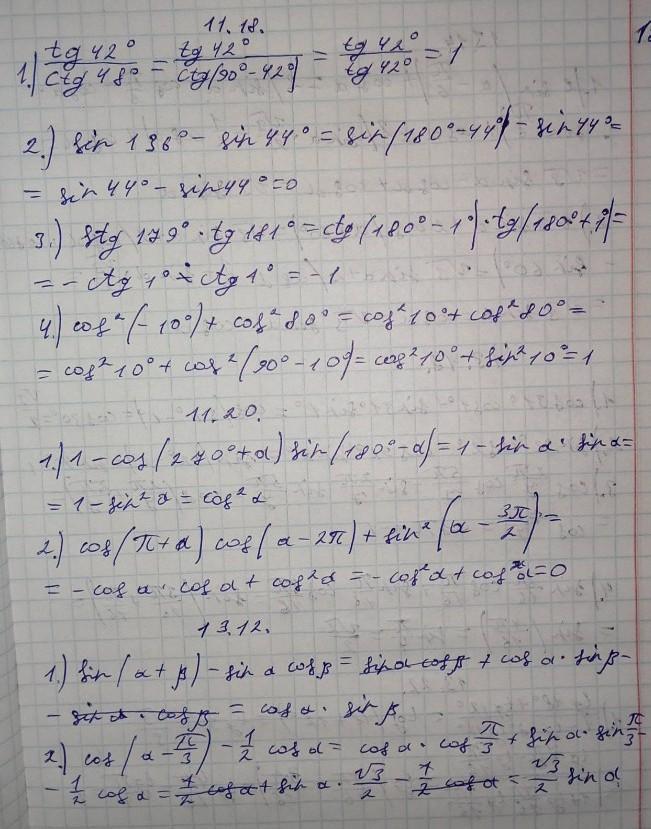 11.18.
1.) tg 42° / ctg 48° = tg 42° / ctg(90° - 42°) = tg 42° / tg 42° = 1
2.) sin 136° - sin 44° = sin(180° - 44°) - sin 44° =
= sin 44° - sin 44° = 0
3.) ctg 179° · tg 181° = ctg(180° - 1°) · tg(180° + 1°) =
= - ctg 1° · ctg 1° = -1
4.) cos²(-10°) + cos² 80° = cos² 10° + cos² 80° =
= cos² 10° + cos²(90° - 10°) = cos² 10° + sin² 10° = 1
11.20.
1.) 1 - cos(270° + α) sin(180° - α) = 1 - sin α · sin α =
= 1 - sin² α = cos² α
2.) cos(π + α) cos(α - 2π) + sin²(α - 3π/2) =
= - cos α · cos α + cos² α = - cos² α + cos² α = 0
13.12.
1.) sin(α + β) - sin α cos β = sin α cos β + cos α · sin β -
- sin α · cos β = cos α · sin β
2.) cos(α - π/3) - 1/2 cos α = cos α · cos π/3 + sin α · sin π/3 -
- 1/2 cos α = 1/2 cos α + sin α · √3/2 - 1/2 cos α = √3/2 sin α